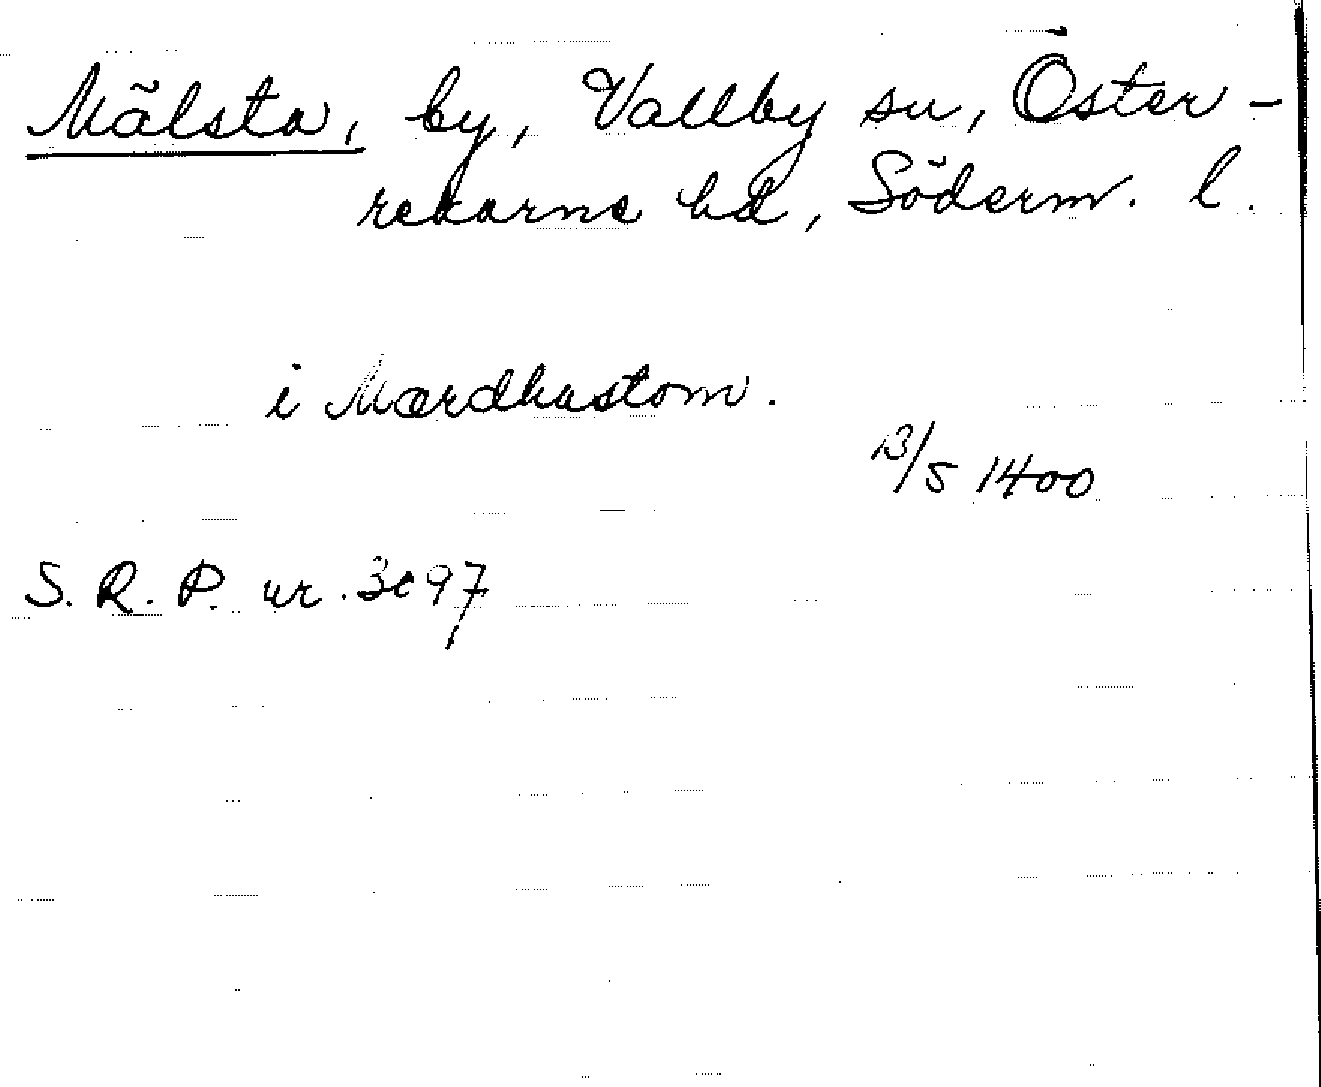 Mälsta, by, Vallby sn, Öster-
rekarne hd, Söderm. l.
i Mærdhastom.
13/5 1400
S. R. P. nr. 3097